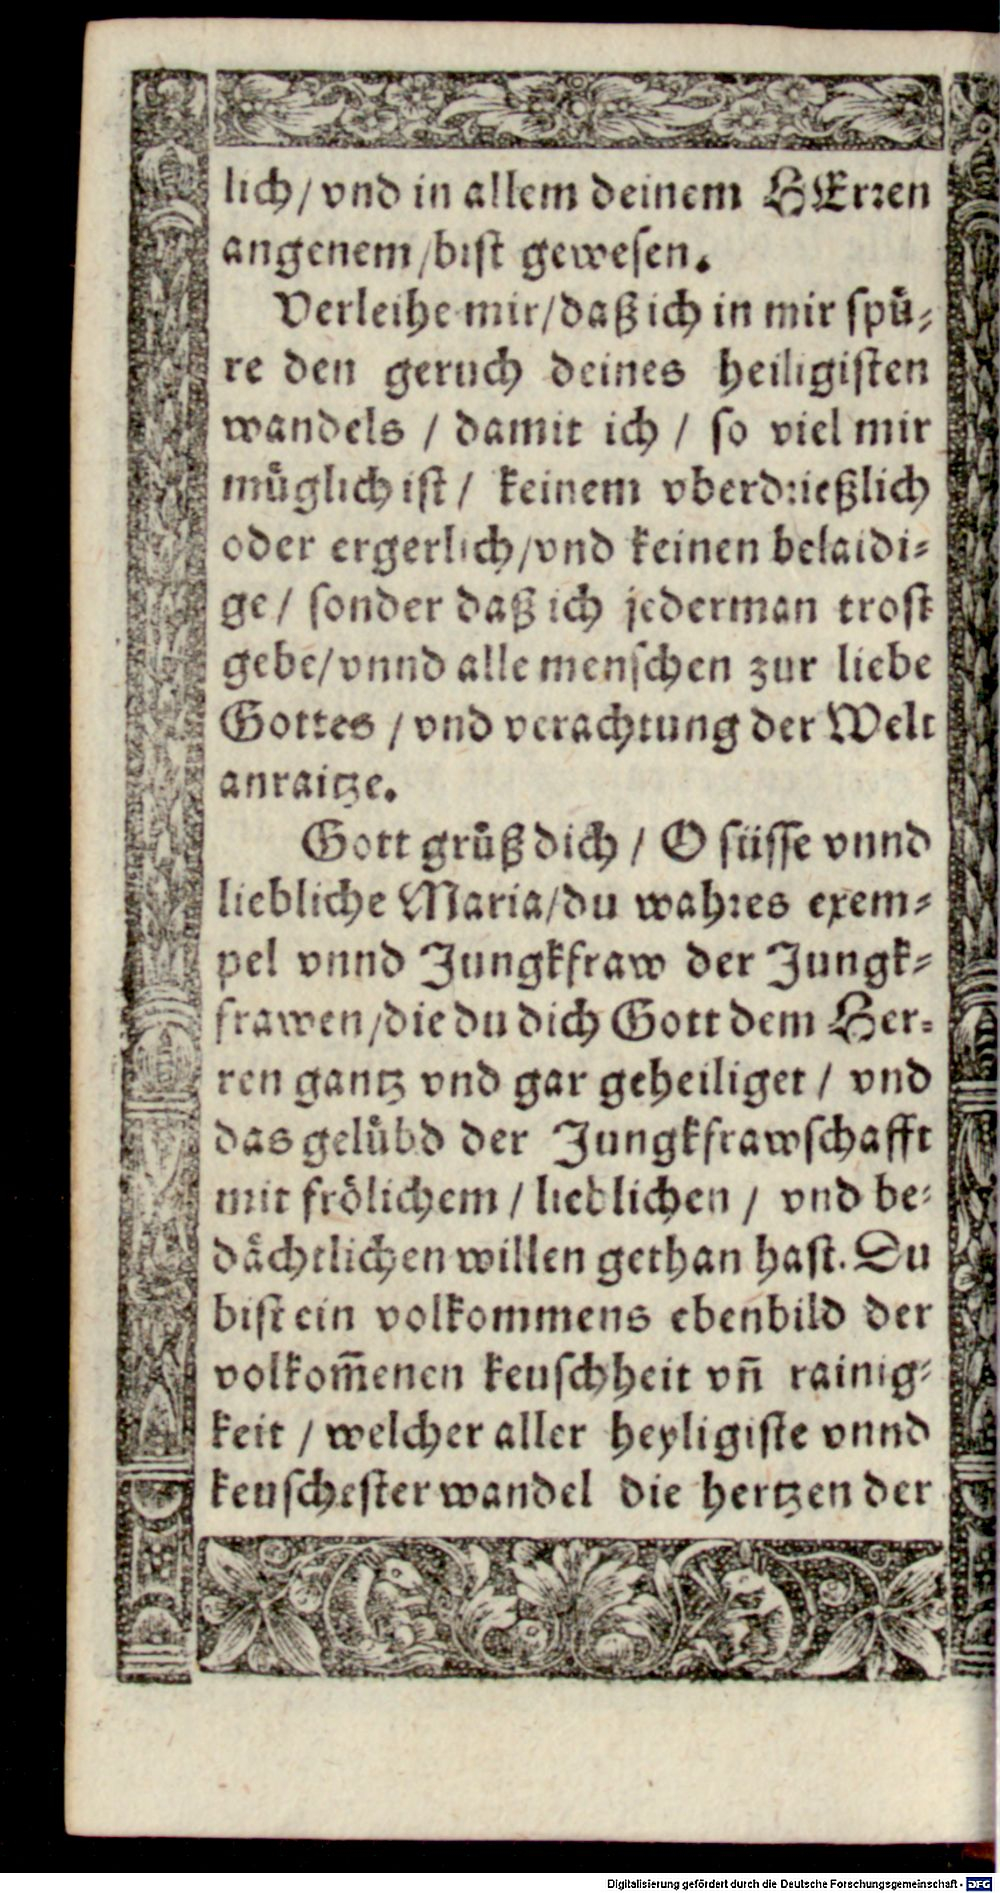 lich/ vnd in allem deinem HErren
angenem/bist gewesen.
Verleihe mir/daß ich in mir spuͤ⸗
re den geruch deines heiligisten
wandels / damit ich / so viel mir
muͤglich ist / keinem vberdrießlich
oder ergerlich/vnd keinen belaidi⸗
ge / sonder daß ich jederman trost
gebe/vnnd alle menschen zur liebe
Gottes / vnd verachtung der Welt
anraitze.
Gott gruͤß dich / O süsse vnnd
liebliche Maria/du wahres exem⸗
pel vnnd Jungkfraw der Jungk⸗
frawen/die du dich Gott dem Her⸗
ren gantz vnd gar geheiliget / vnd
das geluͤbd der Jungkfrawschafft
mit froͤlichem / lieblichen / vnd be⸗
daͤchtlichen willen gethan hast. Du
bist ein volkommens ebenbild der
volkom̃enen keuschheit vñ rainig⸗
keit / welcher aller heyligiste vnnd
keuschester wandel die hertzen der
Digitalisierung gefördert durch die Deutsche Forschungsgemeinschaft - DFG